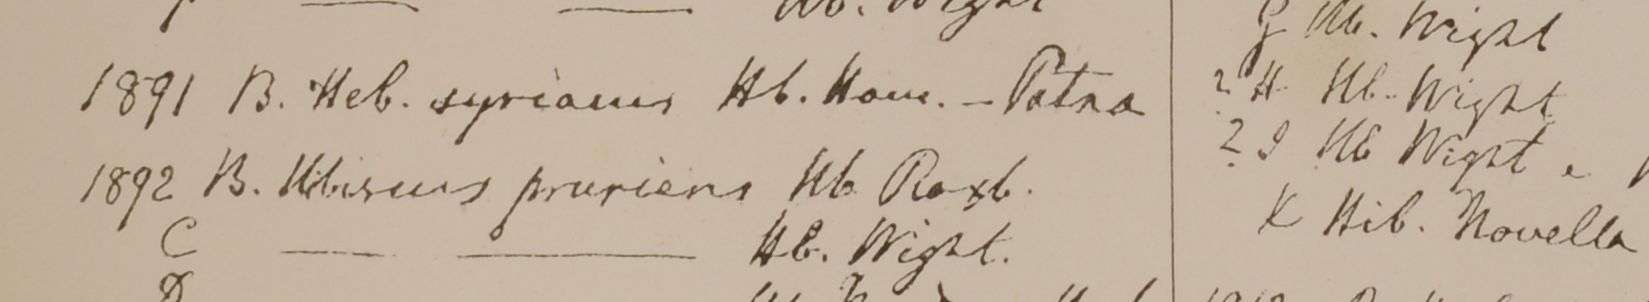 Hb. Wight
1891 B. Heb. syriacus Hb. Ham. - Patna
1892 B. Hibiscus pruriens Hb Roxb.
C — — Hb. Wight.
D
G Hb. Wight
? H Hb. Wight
? I Hb Wight
K Hib. Novella